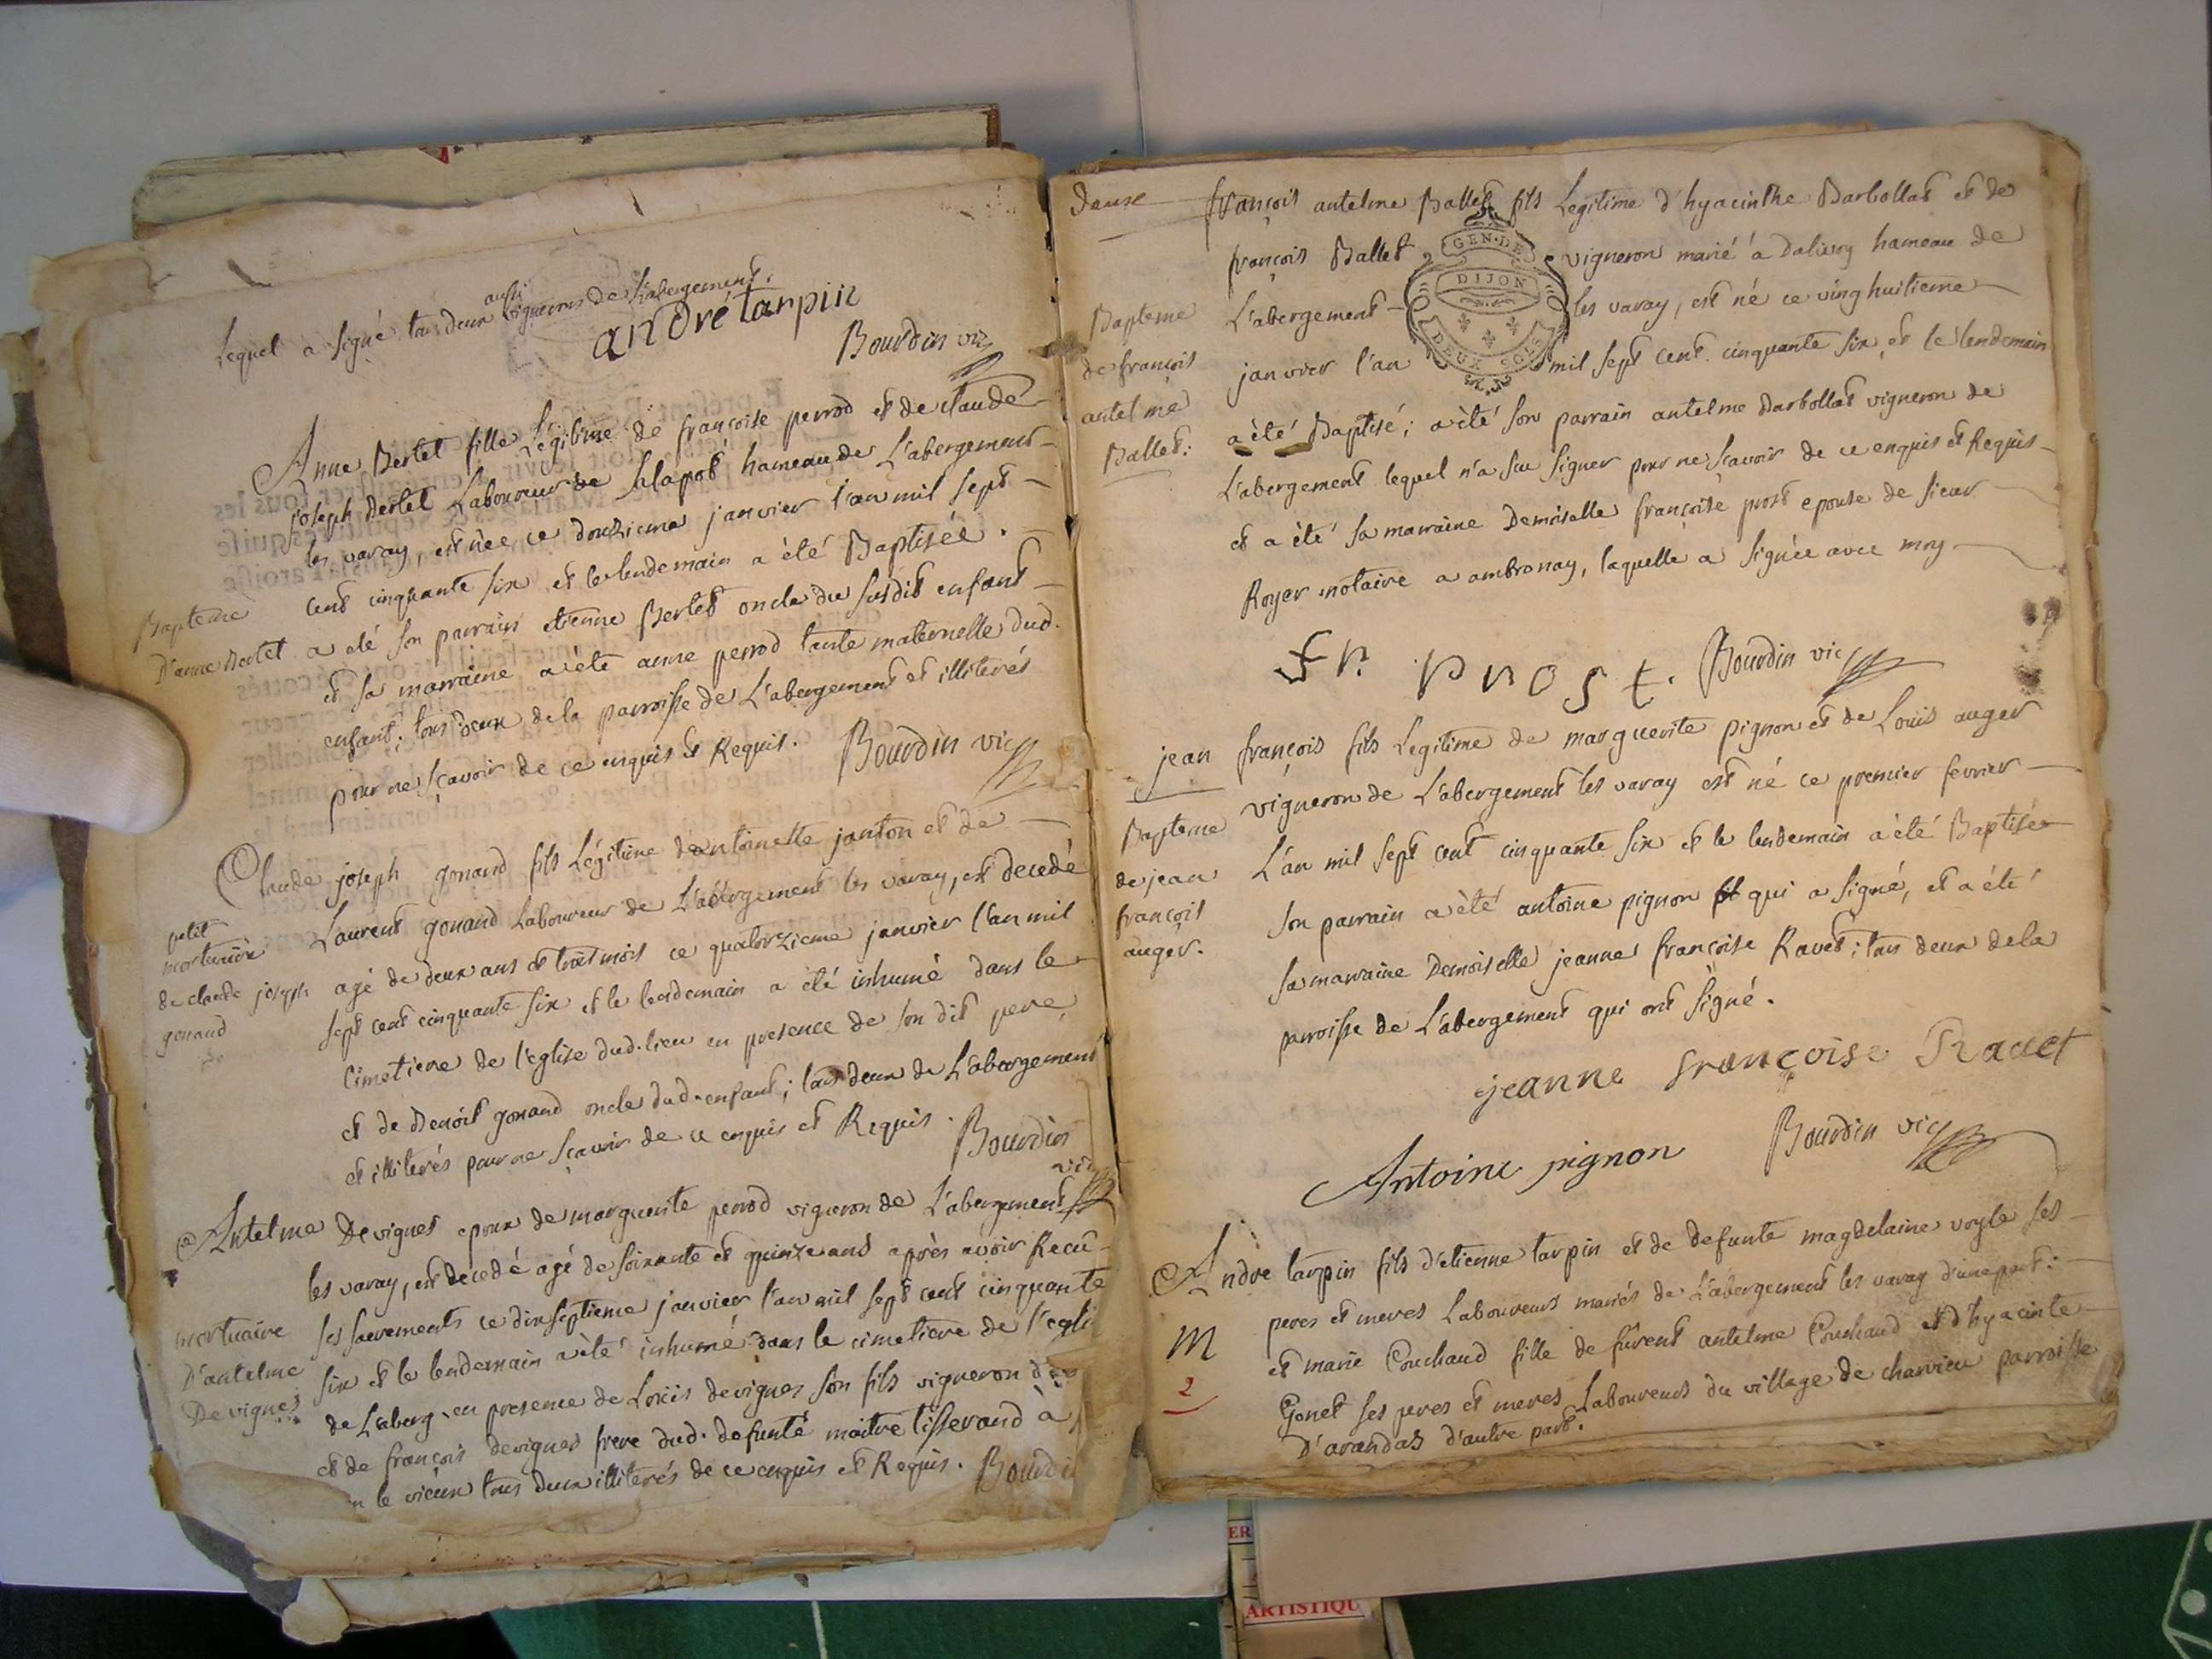 Lequel a signé tous deux aussi vignerons de L'abergement.
andré tarpin
Bourdin vic
Anne Bertet fille Légitime de françoise perrod et de claude
joseph Bertet Laboureur de Salapot hameau de L'abergement
les varay, est née ce douzieme janvier l'an mil sept
cent cinquante six et le lendemain a été Baptisée.
Bapteme
D'anne Bertet
a eté son parrain etienne Bertet oncle du susdit enfant
et sa marraine a été anne perrod tante maternelle dud.
enfant; tous deux de la parroisse de L'abergement et illiterés
pour ne sçavoir de ce enquis et Requis. Bourdin vic
Claude joseph gonand fils Légitime d'antoinette janton et de
Laurent gonand Laboureur de L'abergement les varay, est decedé
petit
mortuaire
de claude joseph
gonand
agé de deux ans et trois mois ce quatorzieme janvier l'an mil
sept cent cinquante six et le lendemain a été inhumé dans le
Cimetiere de l'eglise dud. lieu en presence de son dit pere
et de Benoit gonand oncle dud. enfant; tous deux de L'abergement
et illiterés pour ne sçavoir de ce enquis et Requis. Bourdin
vic
Antelme Devignes epoux de marguerite perrod vigneron de L'abergement
les varay, est decedé agé de soixante et quinze ans après avoir Recu
ses sacrements ce dixseptieme janvier l'an mil sept cent cinquante
mortuaire
D'antelme
Devignes
six et le lendemain a été inhumé dans le cimetiere de l'egli
de L'aberg. en presence de Loüis devignes son fils vigneron
et de françois devignes frere dud. defunte maitre tisserand à
le vieux tous deux illiterés de ce enquis et Requis. Bourdi
deuxe
françois antelme Ballet fils Legitime d'hyacinthe Barbollat et de
françois Ballet vigneron marié à Dalivoy hameau de
GEN·DE
DIJON
DEUX SOLS
L'abergement les varay, est né ce vinghuitieme
janvier l'an mil sept cent cinquante six et le lendemain
Bapteme
de françois
antelme
Ballet:
a été Baptisé; a été son parrain antelme Barbollat vigneron de
L'abergement lequel n'a su signer pour ne sçavoir de ce enquis et Requis
et a été sa marraine Demoiselle françoise prost epouse de sieur
Royer notaire a ambronay, laquelle a signée avec moy
fr. prost. Bourdin vic
jean françois fils Legitime de marguerite pignon et de Loüis auger
vigneron de L'abergement les varay est né ce premier fevrier
Bapteme
de jean
françois
auger.
L'an mil sept cent cinquante six et le lendemain a été Baptisé
son parrain a été antoine pignon qui a signé, et a été
sa marraine Demoiselle jeanne françoise Ravet; tous deux de la
parroisse de L'abergement qui ont signé.
jeanne françoise Ravet
Antoine pignon Bourdin vic
Andre tarpin fils d'etienne tarpin et de defunte magdelaine voyle ses
peres et meres Laboureurs mariés de L'abergement les varay d'une part:
M
2
et marie Couchaud fille de fûrent antelme Couchaud et d'hyacinte
Gonet ses peres et meres Laboureurs du village de charvieu parroisse
D'arandas d'autre part.
ER
ARTISTIQU